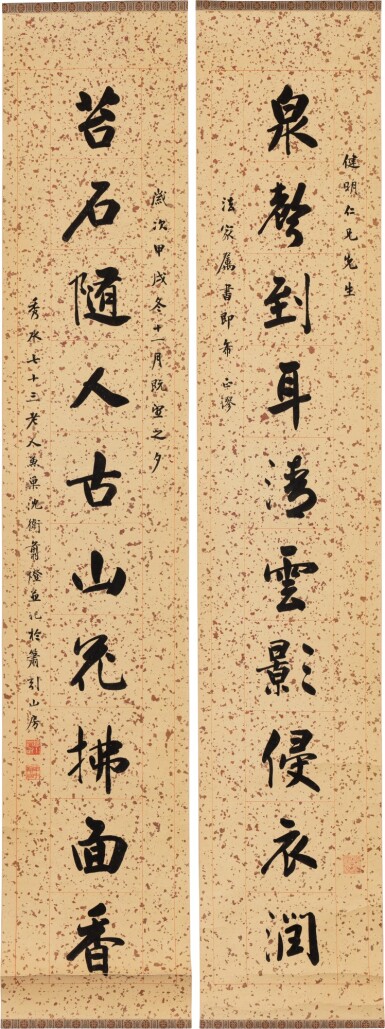 泉聲到耳清雲影侵衣潤
健明仁兄先生
法家屬書即希正謬
苔石隨人古山花拂面香
歲次甲戌冬十一月既望之夕
秀水七十三老人兼巢沈衛翦燈並記於簫引山房